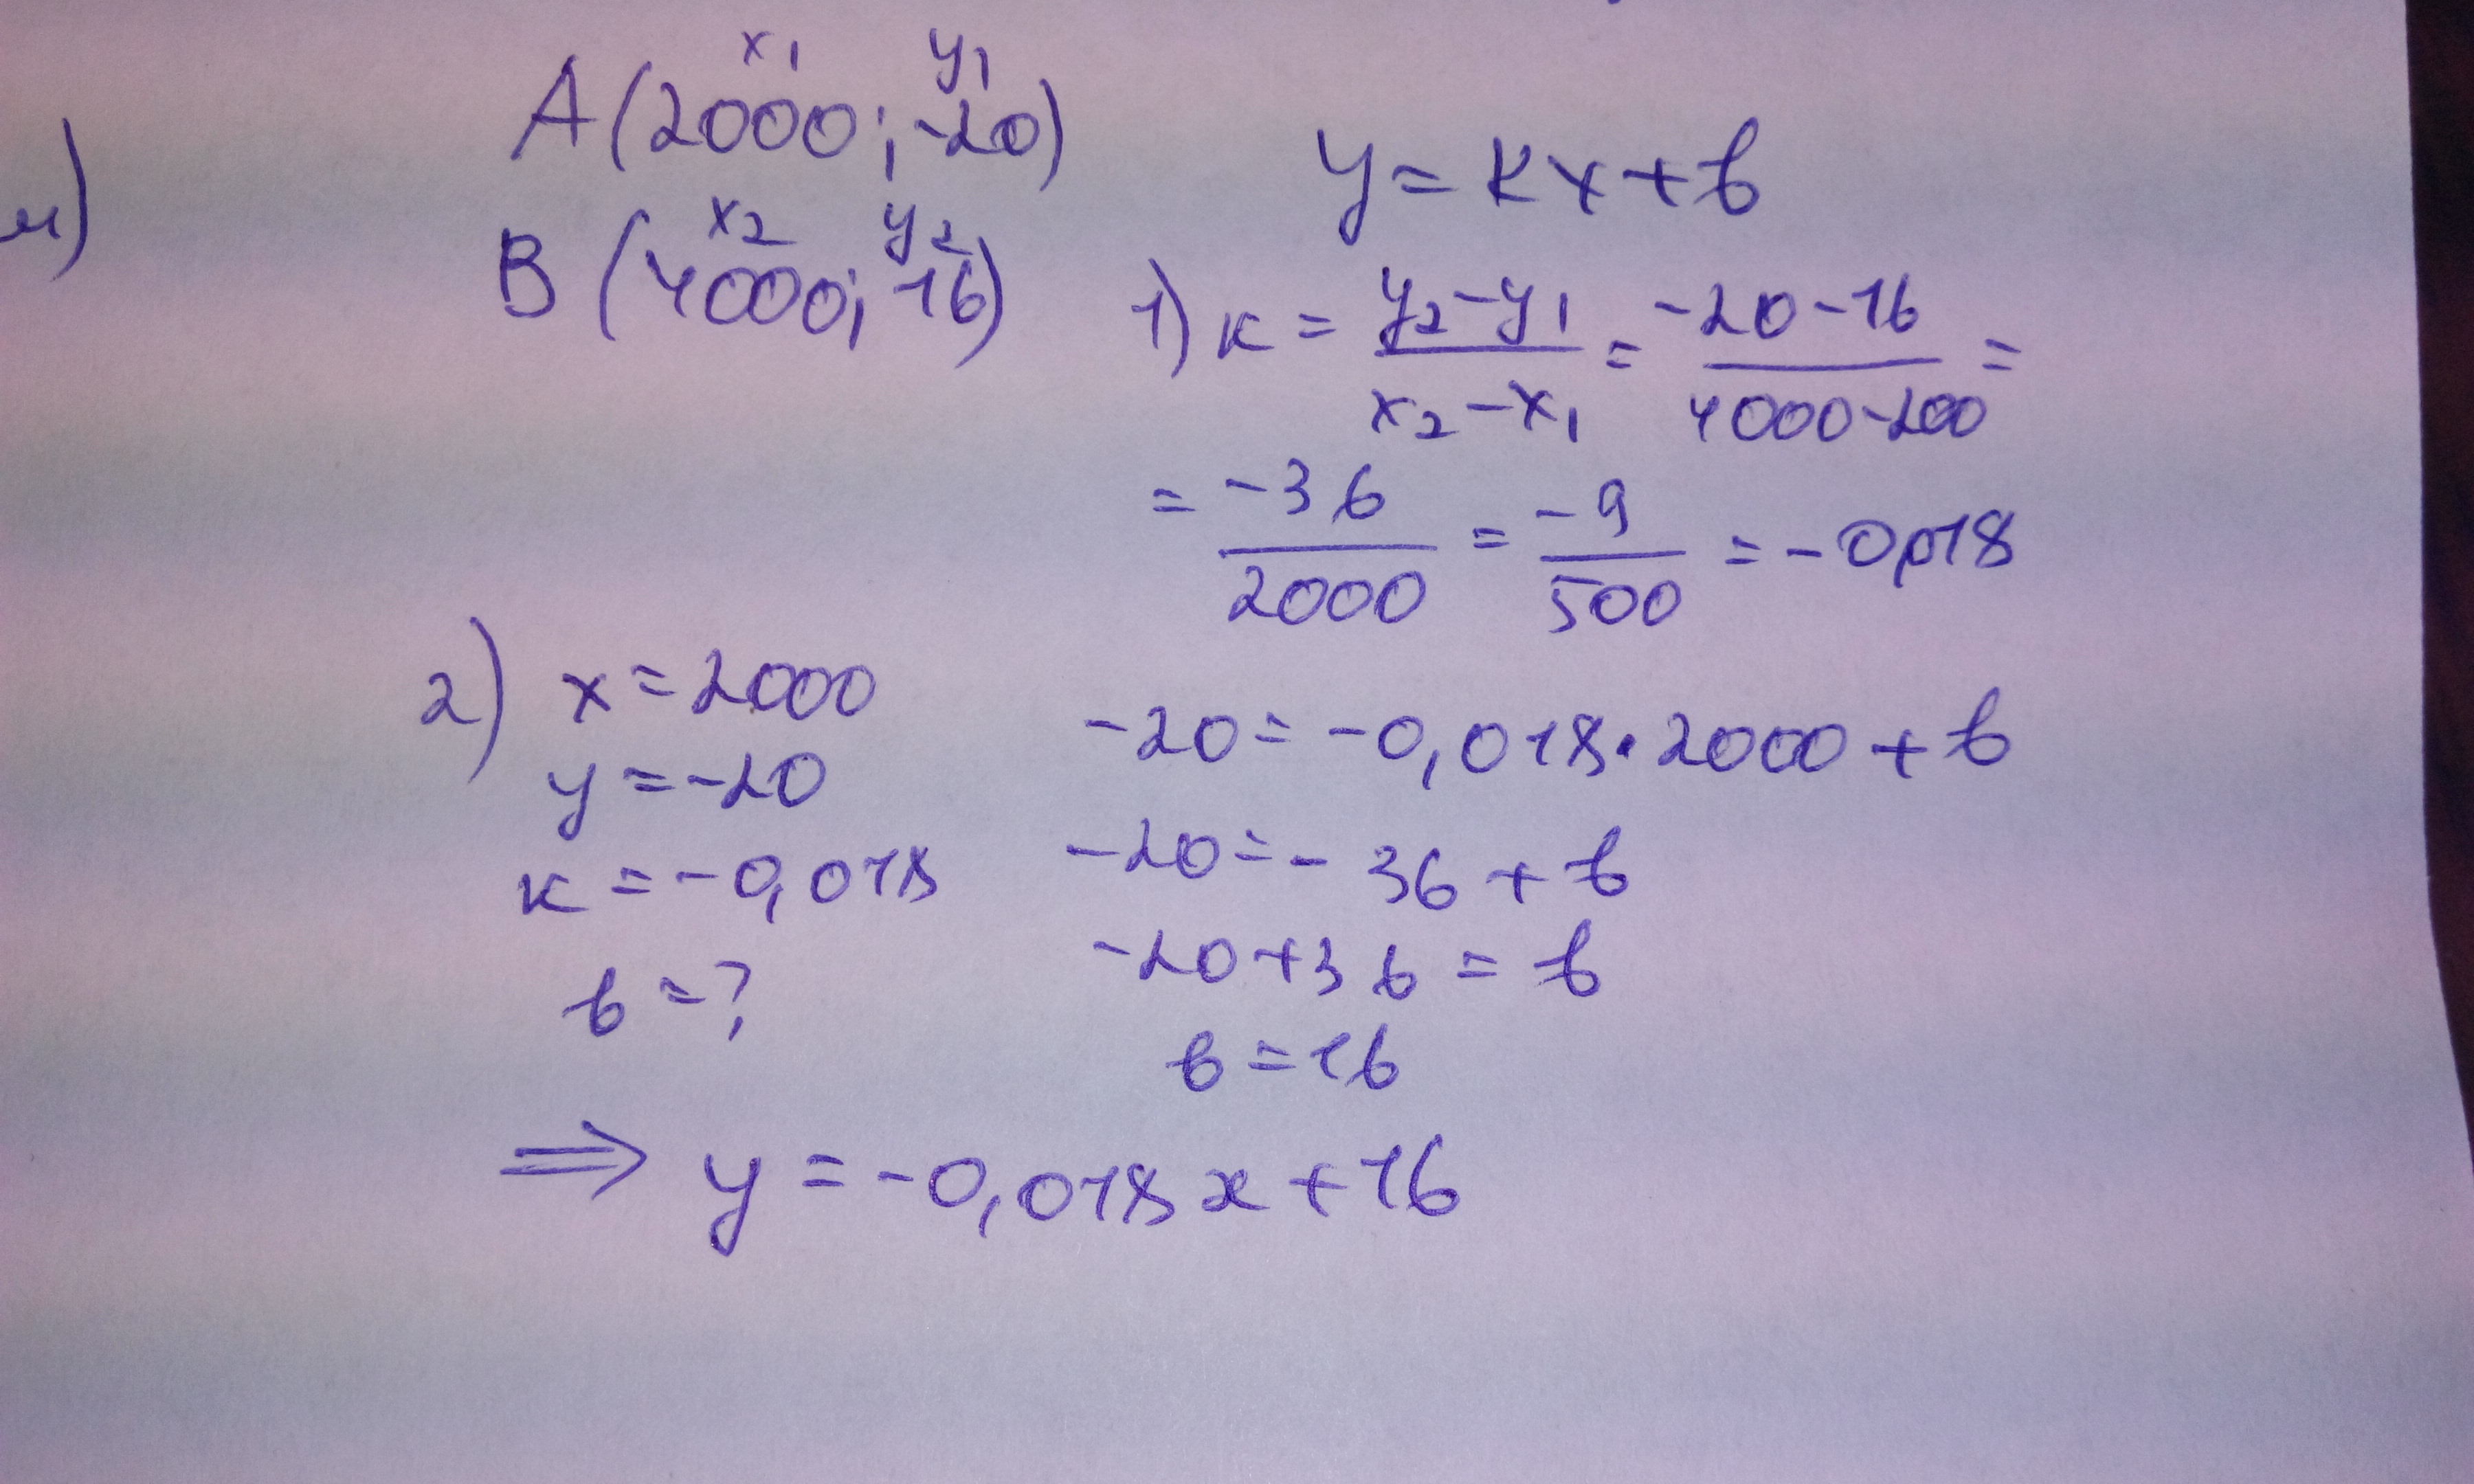 и)
x1 y1
A(2000; -20)
x2 y2
B (4000; 16)
y = kx + b
1) к = y2-y1/x2-x1 = -20-16/4000-200 =
= -36/2000 = -9/500 = -0,018
2) x = 2000
y = -20
к = -0,018
b = ?
-20 = -0,018·2000 + b
-20 = -36 + b
-20+36 = b
b = 16
⇒ y = -0,018x + 16